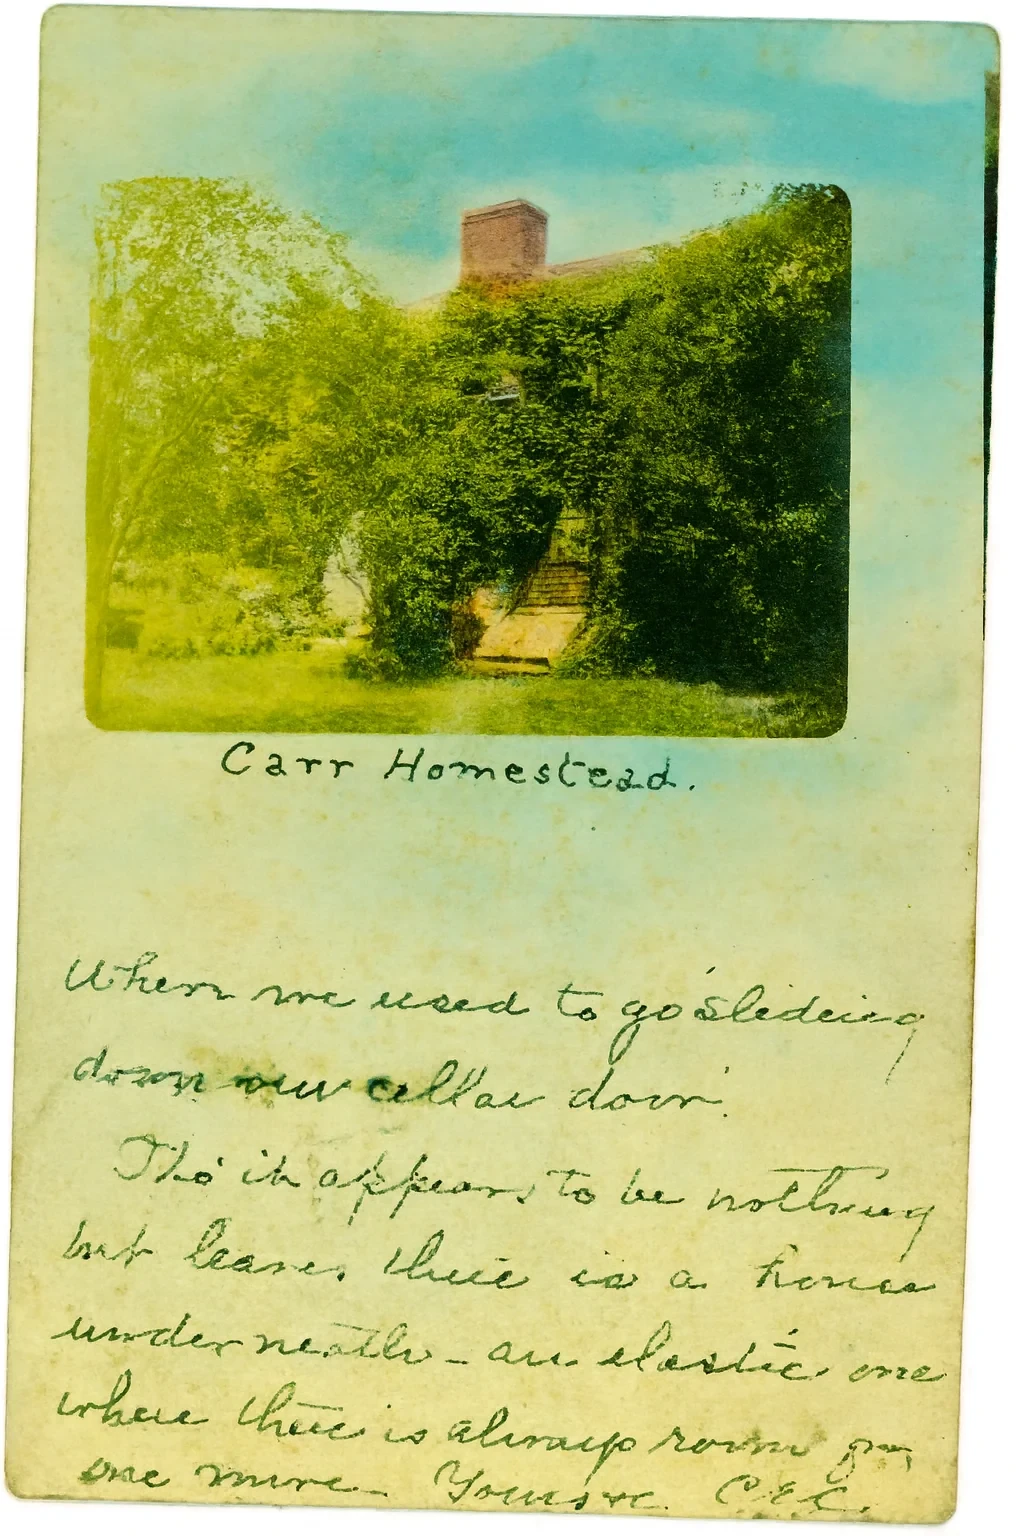 Carr Homestead.
When we used to go slideing
down our cellar door.
Tho' it appears to be nothing
but leaves, there is a house
underneath - an elastic one
where there is always room for
one more. Yours &c. C.E.C.